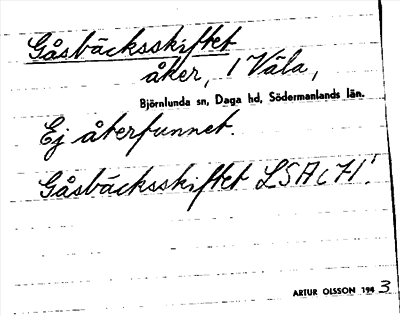 Gåsbäcksskiftet
åker, i Väla,
Björnlunda sn, Daga hd, Södermanlands län.
Ej återfunnet.
Gåsbäcksskiftet LSA c 71!
ARTUR OLSSON 194 3